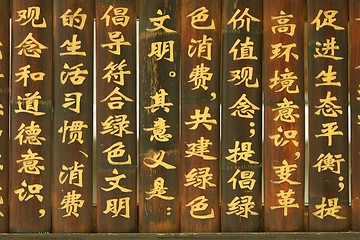 促进生态平衡；提
高环境意识，变革
价值观念；提倡绿
色消费，共建绿色
文明。其意义是：
倡导符合绿色文明
的生活习惯、消费
观念和道德意识，